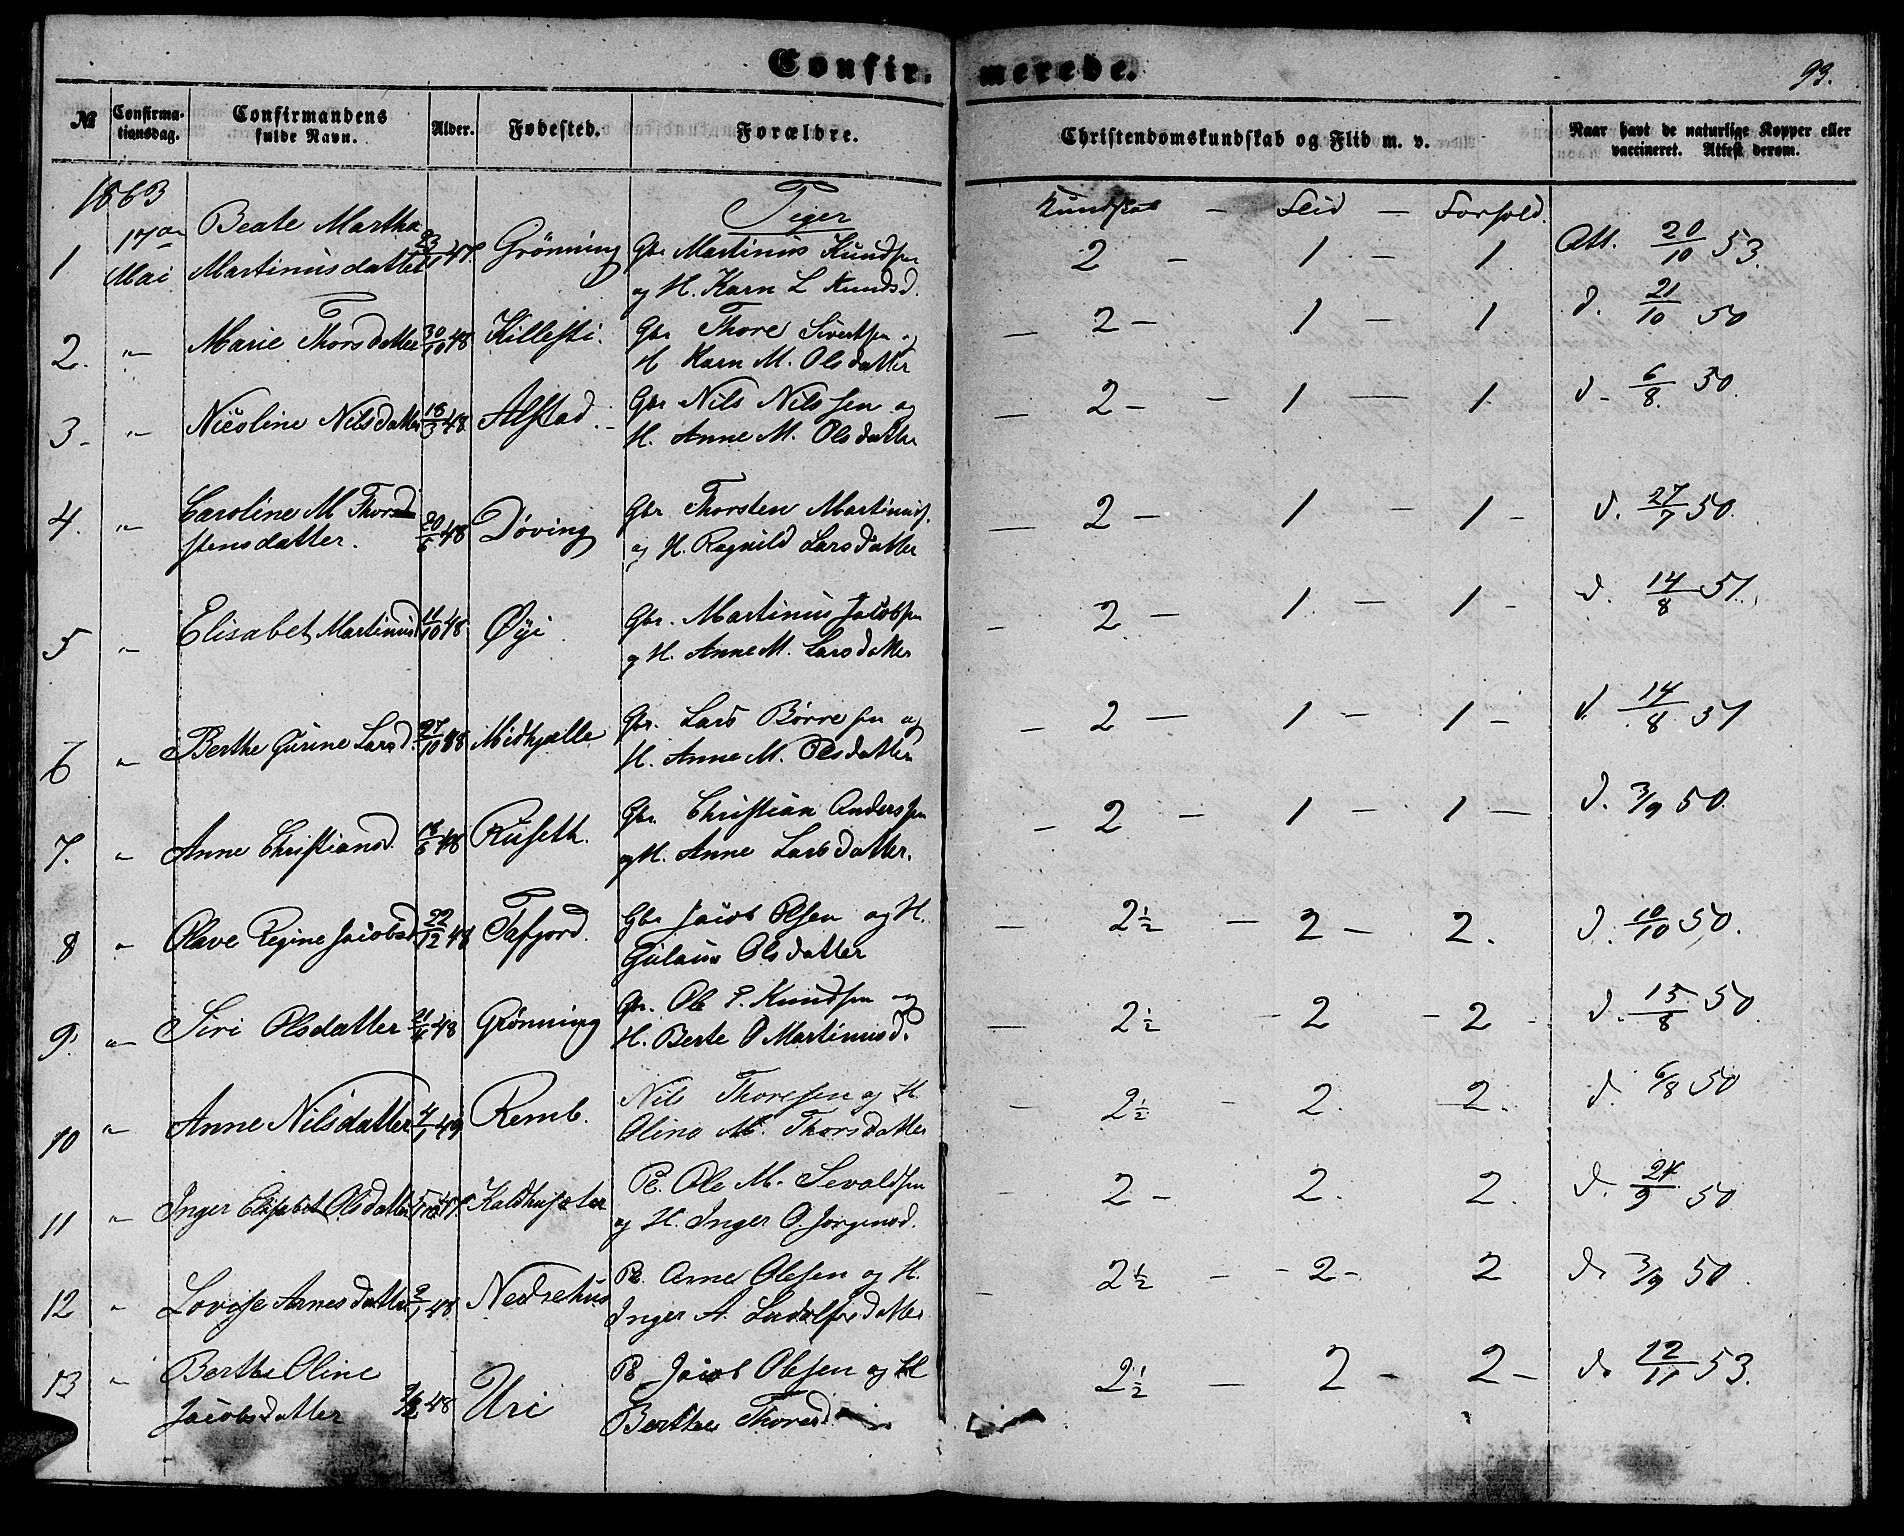 Confir. merede. 93.
№ Confirma-tiansdag. Confirmandens fulde Navn. Alder. Fødested. Forældre. Christendomskundskab og Flid m. v. Naar havt de naturlige Kopper eller vaccineret. Attest derom.
1863 Piger Kundskab — Flid — Forhold.
1 17de Mai Beate Martha Martinusdatter 47. Grønning Gbr Martinus Knudsen og H. Karn L Knudsd. 2 — 1 — 1. Att. 20/10 53.
2. " Marie Thorsdatter 30/10 48 Killesti. Gbr Thore Sivertsen og H Karn M. Olsdatter — 2 — 1 — 1. d. 21/10 50
3. " Nicoline Nilsdatter 18/3 48 Alstad. Gbr Nils Nilssen og H. Anne M. Olsdatter — 2 — 1 — 1. d. 6/8. 50.
4. " Caroline M Thorstensdatter. 20/6 48 Døving Gbr Thorsten Martinus. og H. Ragnild Larsdatter — 2 — 1 — 1 — d. 27/7 50.
5 " Elisabet Martinusd 11/10 48. Øyi Gbr. Martinus Jacobsen og H. Anne M. Larsdatter — 2 — 1. — 1 — d. 14/8 51.
6 " Berthe Gurine Larsd. 27/10 48 Midhjælle Gbr. Lars Børresen og H. Anne M. Olsdatter — 2 — 1 — 1 — d. 14/8 51
7. " Anne Christiansd. 18/6 48 Ruseth. Gbr. Christian Anderssen og H. Anne Larsdatter. — 2 — 1 — 1 — d. 3/9 50.
8 " Olave Regine Jacobsd 22/12 48 Tafjord. Gbr Jacob Olsen og H. Gulaug Olsdatter — 2½ — 2 — 2. d. 10/10 50.
9. " Siri Olsdatter 48 Grønning Gbr. Ole P. Knudsen og H. Berte O Martinusd. — 2½ — 2 — 2 — d. 15/8 50.
10 " Anne Nilsdatter 4/1 49 Remb. Nils Thoresen og H Oline M. Thorsdatter — 2½ — 2. — 2. d. 6/8 50
11 " Inger Elisabet Olsdatter Kaldhusæter Pl. Ole M. Sevaldsen og H. Inger O. Jørgensd. — 2 — 2. 2. d. 24/9 50
12 " Lovise Arnesdatter 48 Nedrehus Pl. Arne Olesen og H. Inger A. Ludolfsdatter — 2½ — 2 — 2 do 3/9 50.
13 " Berthe Oline Jacobsdatter 48 Uri Pl Jacob Olesen og H Berthe Thoresd. 2½ — 2 — 2 — do 12/11 53.